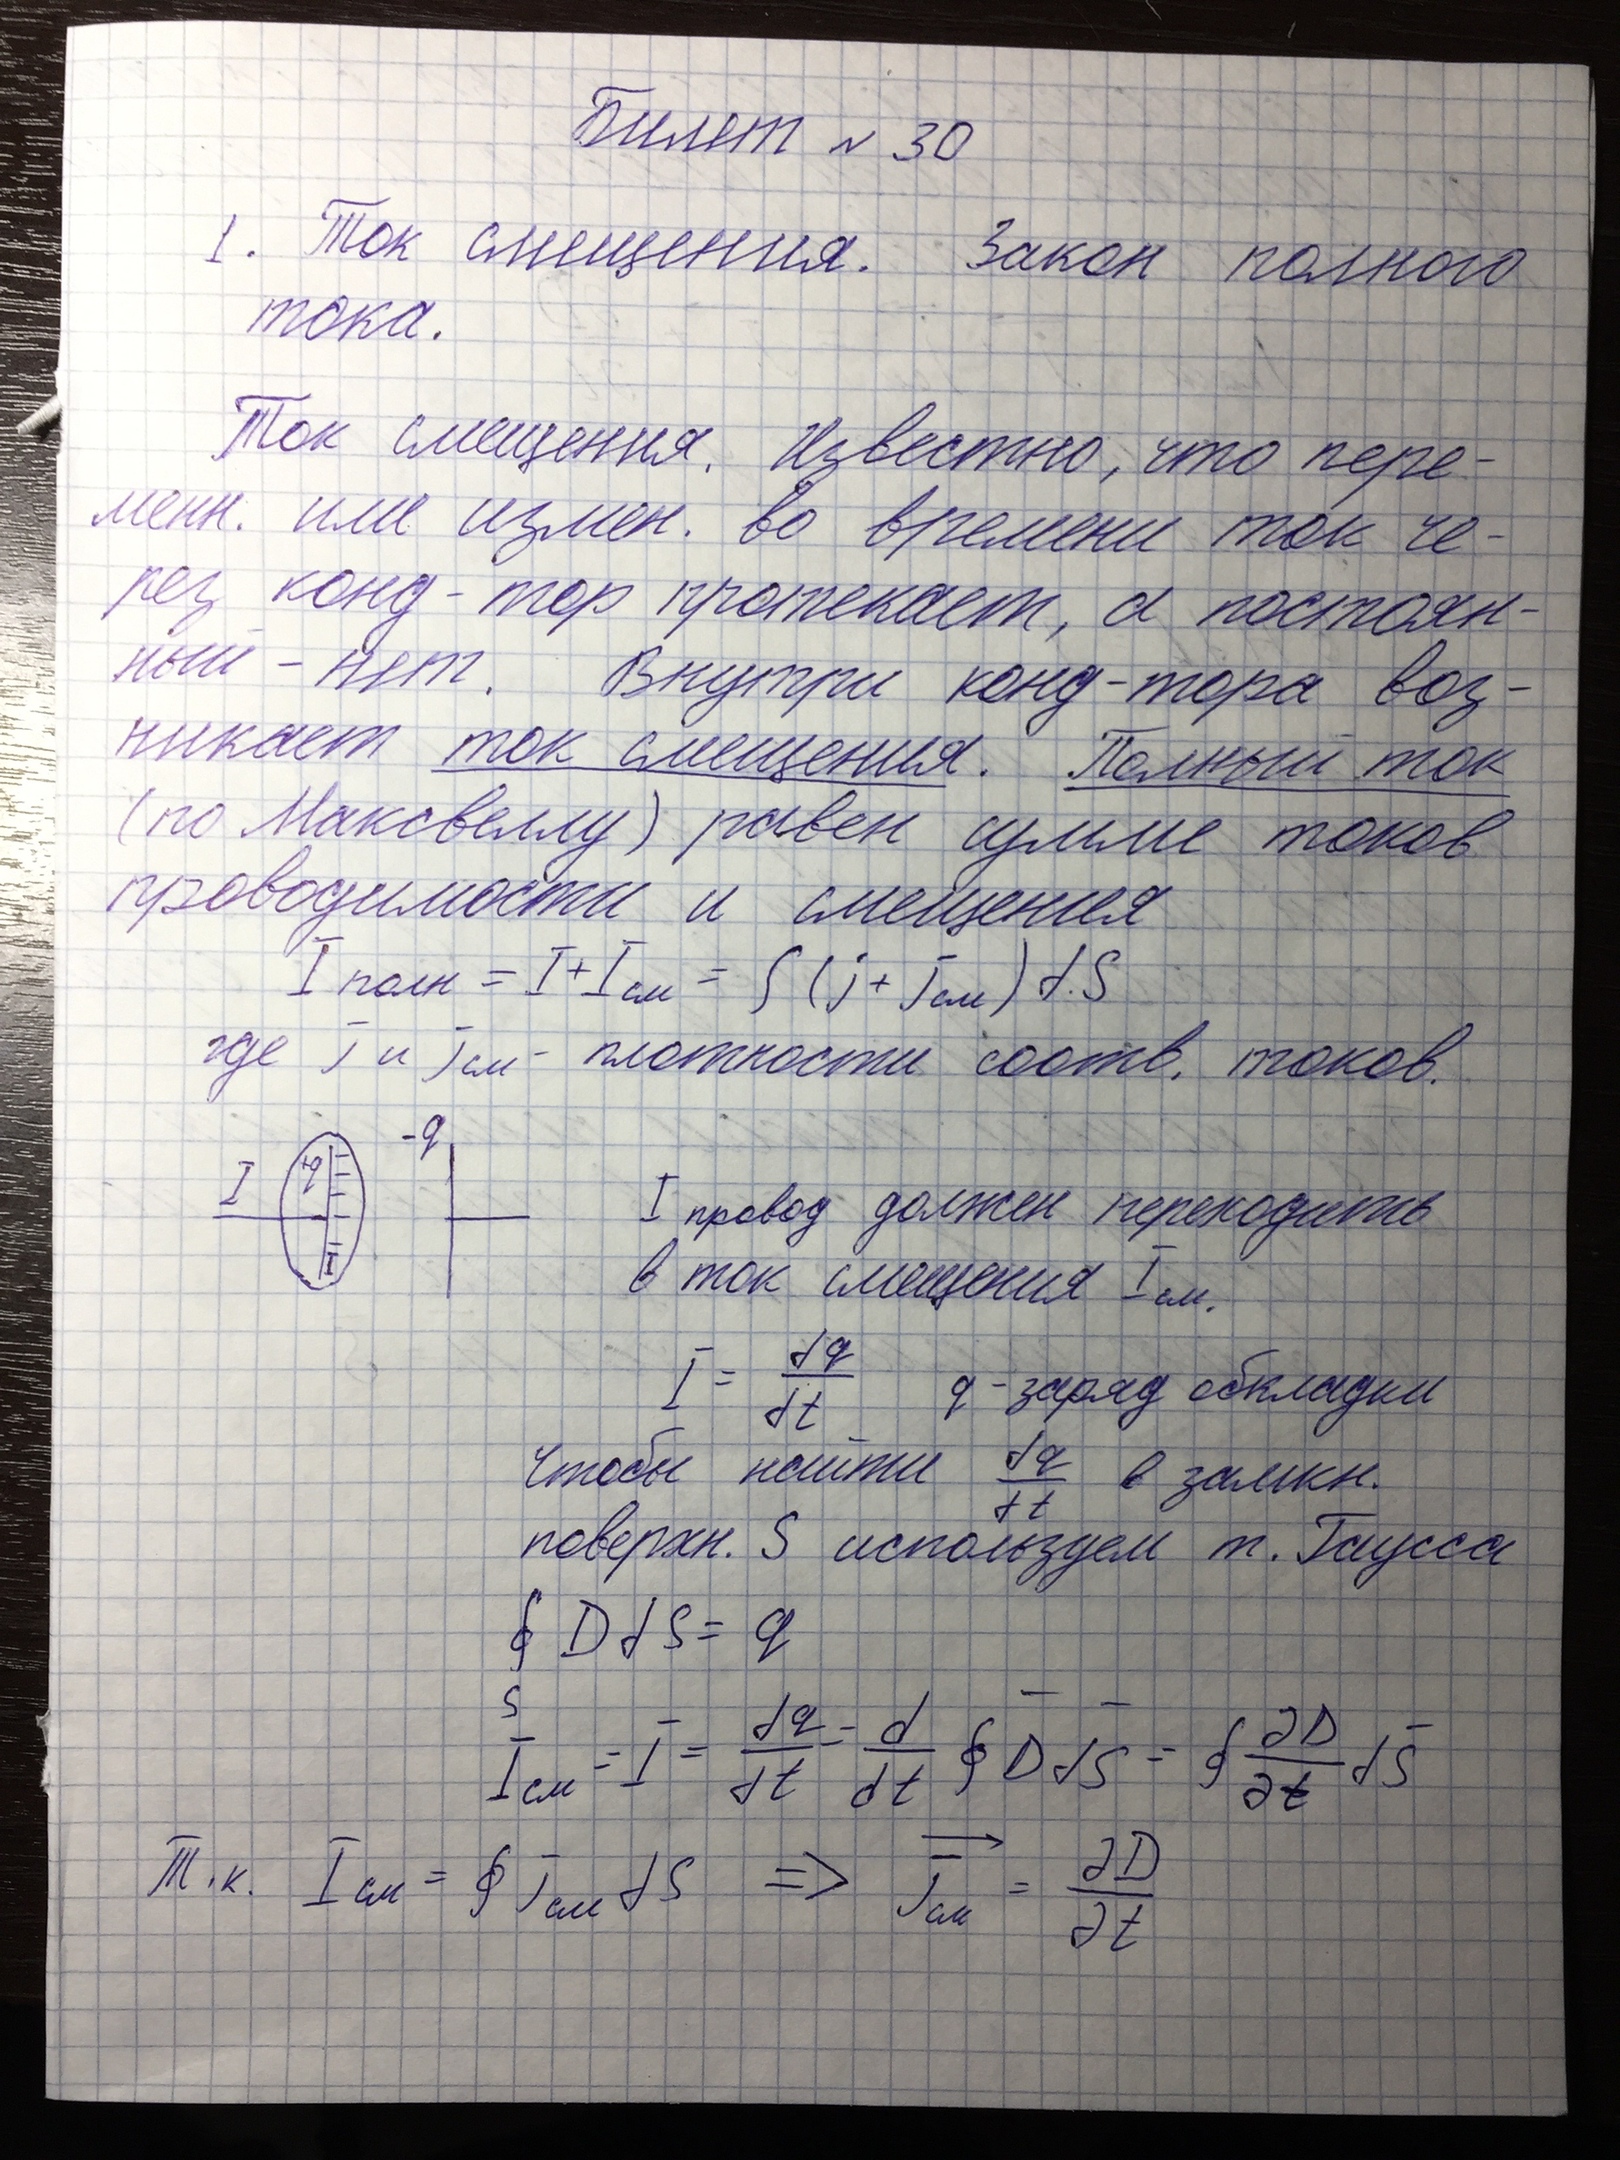 Билет № 30
1. Ток смещения. Закон полного
тока.
Ток смещения. Известно, что пере-
менн. или измен. во времени ток че-
рез конд-тор протекает, а постоян-
ный - нет. Внутри конд-тора воз-
никает ток смещения. Полный ток
(по Максвеллу) равен сумме токов
проводимости и смещения
I полн = I + I см = ∫ (j + j см) d S
где j и j см - плотности соотв. токов.
I +q I -q
I провод должен переходить
в ток смещения I см.
I = dq/dt q - заряд обкладки
Чтобы найти dq/dt в замкн.
поверхн. S используем т. Гаусса
∮ D dS = q
S
I см = I = dq/dt = d/dt ∮ D̅ dS̅ = ∮ ∂D/∂t dS̅
Т.к. I см = ∮ j см dS => j см = ∂D/∂t